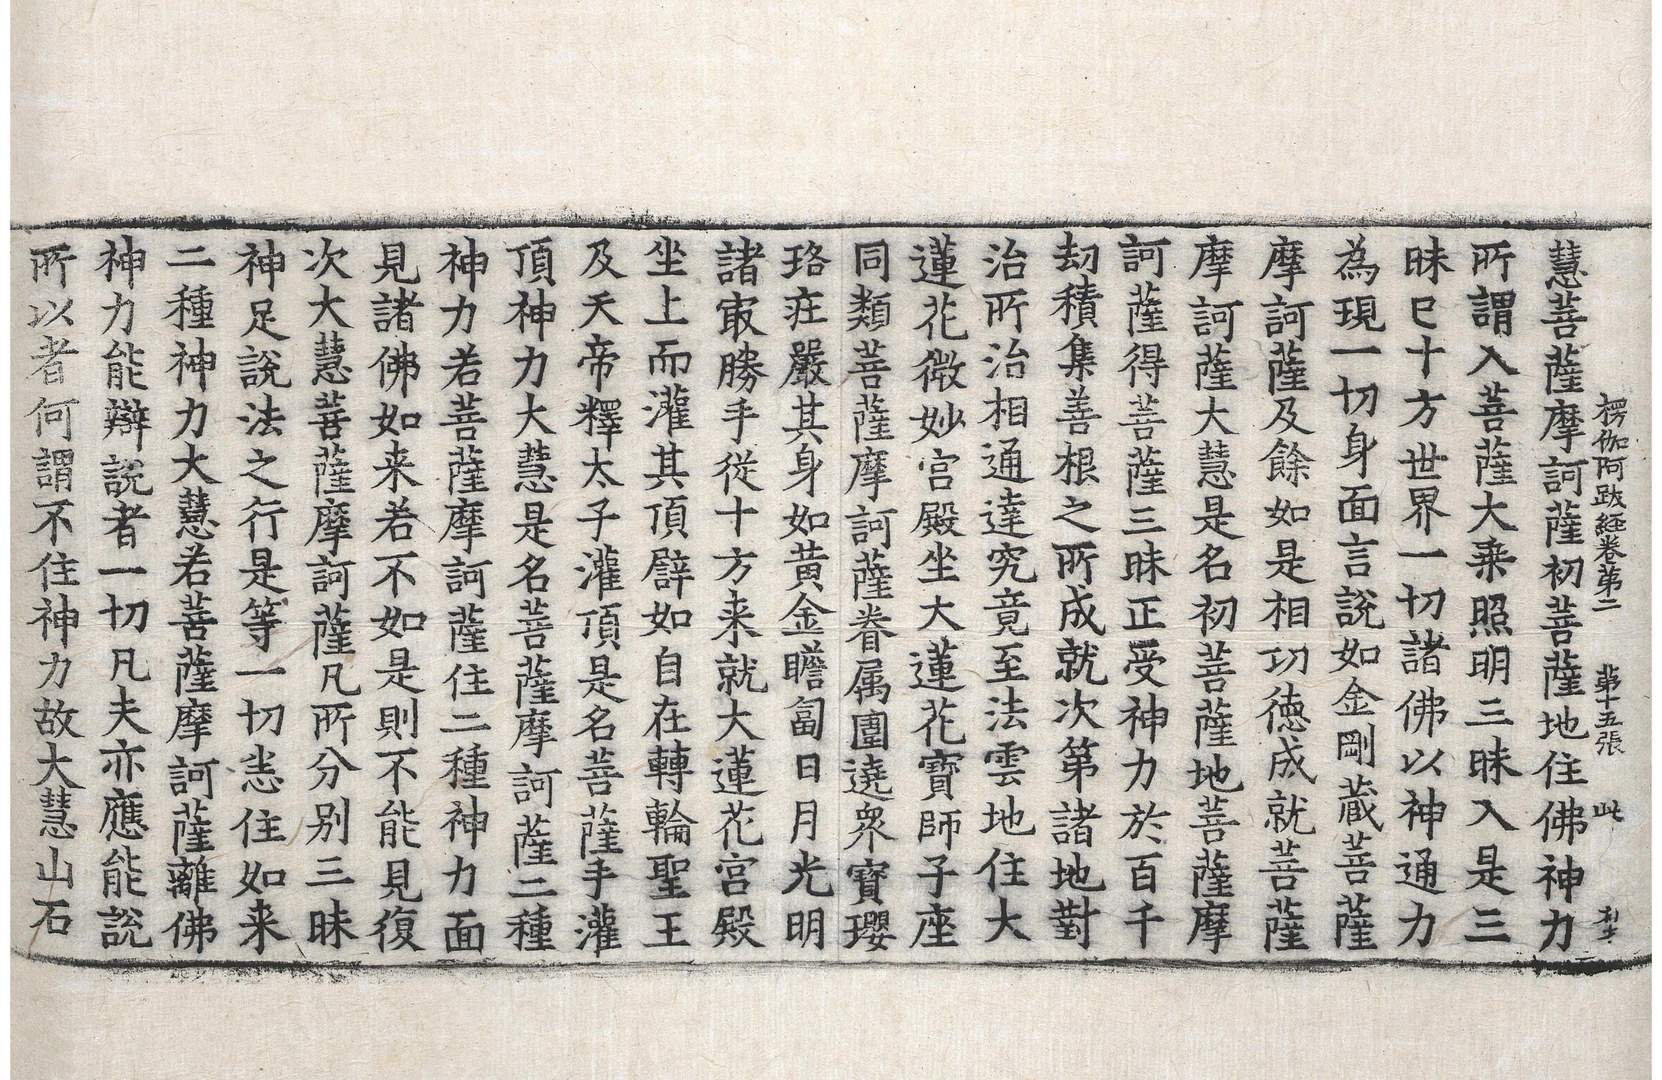 楞伽阿跋經卷第二 第十五張 此
慧菩薩摩訶薩初菩薩地住佛神力
所謂入菩薩大乗照明三昧入是三
昧已十方世界一切諸佛以神通力
為現一切身面言說如金剛蔵菩薩
摩訶薩及餘如是相功徳成就菩薩
摩訶薩大慧是名初菩薩地菩薩摩
訶薩得菩薩三昧正受神力於百千
劫積集善根之所成就次第諸地對
治所治相通達究竟至法雲地住大
蓮花微妙宮殿坐大蓮花寶師子座
同類菩薩摩訶薩眷属圍遶眾寶瓔
珞莊嚴其身如黄金瞻蔔日月光明
諸㝡勝手從十方来就大蓮花宮殿
坐上而灌其頂譬如自在轉輪聖王
及天帝釋太子灌頂是名菩薩手灌
頂神力大慧是名菩薩摩訶薩二種
神力若菩薩摩訶薩住二種神力面
見諸佛如来若不如是則不能見復
次大慧菩薩摩訶薩凡所分別三昧
神足說法之行是等一切悉住如来
二種神力大慧若菩薩摩訶薩離佛
神力能辯說者一切凡夫亦應能說
所以者何謂不住神力故大慧山石